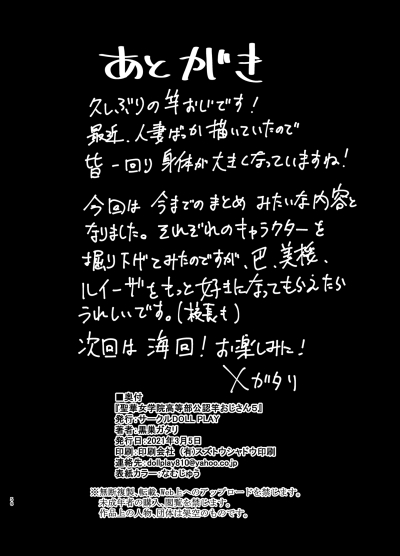 あとがき
久しぶりの竿おじです!
最近、人妻ばっか描いていたので
皆一回り身体が大きくなっていますね!
今回は今までのまとめみたいな内容と
なりました。それぞれのキャラクターを
掘り下げてみたのですが、巴、美桜、
ルイーザをもっと好きになってもらえたら
うれしいです。(校長も)
次回は海回!お楽しみに!
メガタリ
■奥付
『聖華女学院高等部公認竿おじさん5』
発行:サークルDOLL PLAY
著者:黒巣ガタリ
発行日:2021年3月5日
印刷:印刷会社 (有)スズトウシャドウ印刷
連絡先:dollplay810@yahoo.co.jp
表紙カラー:なむじゅう
※無断複製、転載、Web上へのアップロードを禁じます。
未成年者の購入、閲覧を禁じます。
作品上の人物、団体は架空のものです。